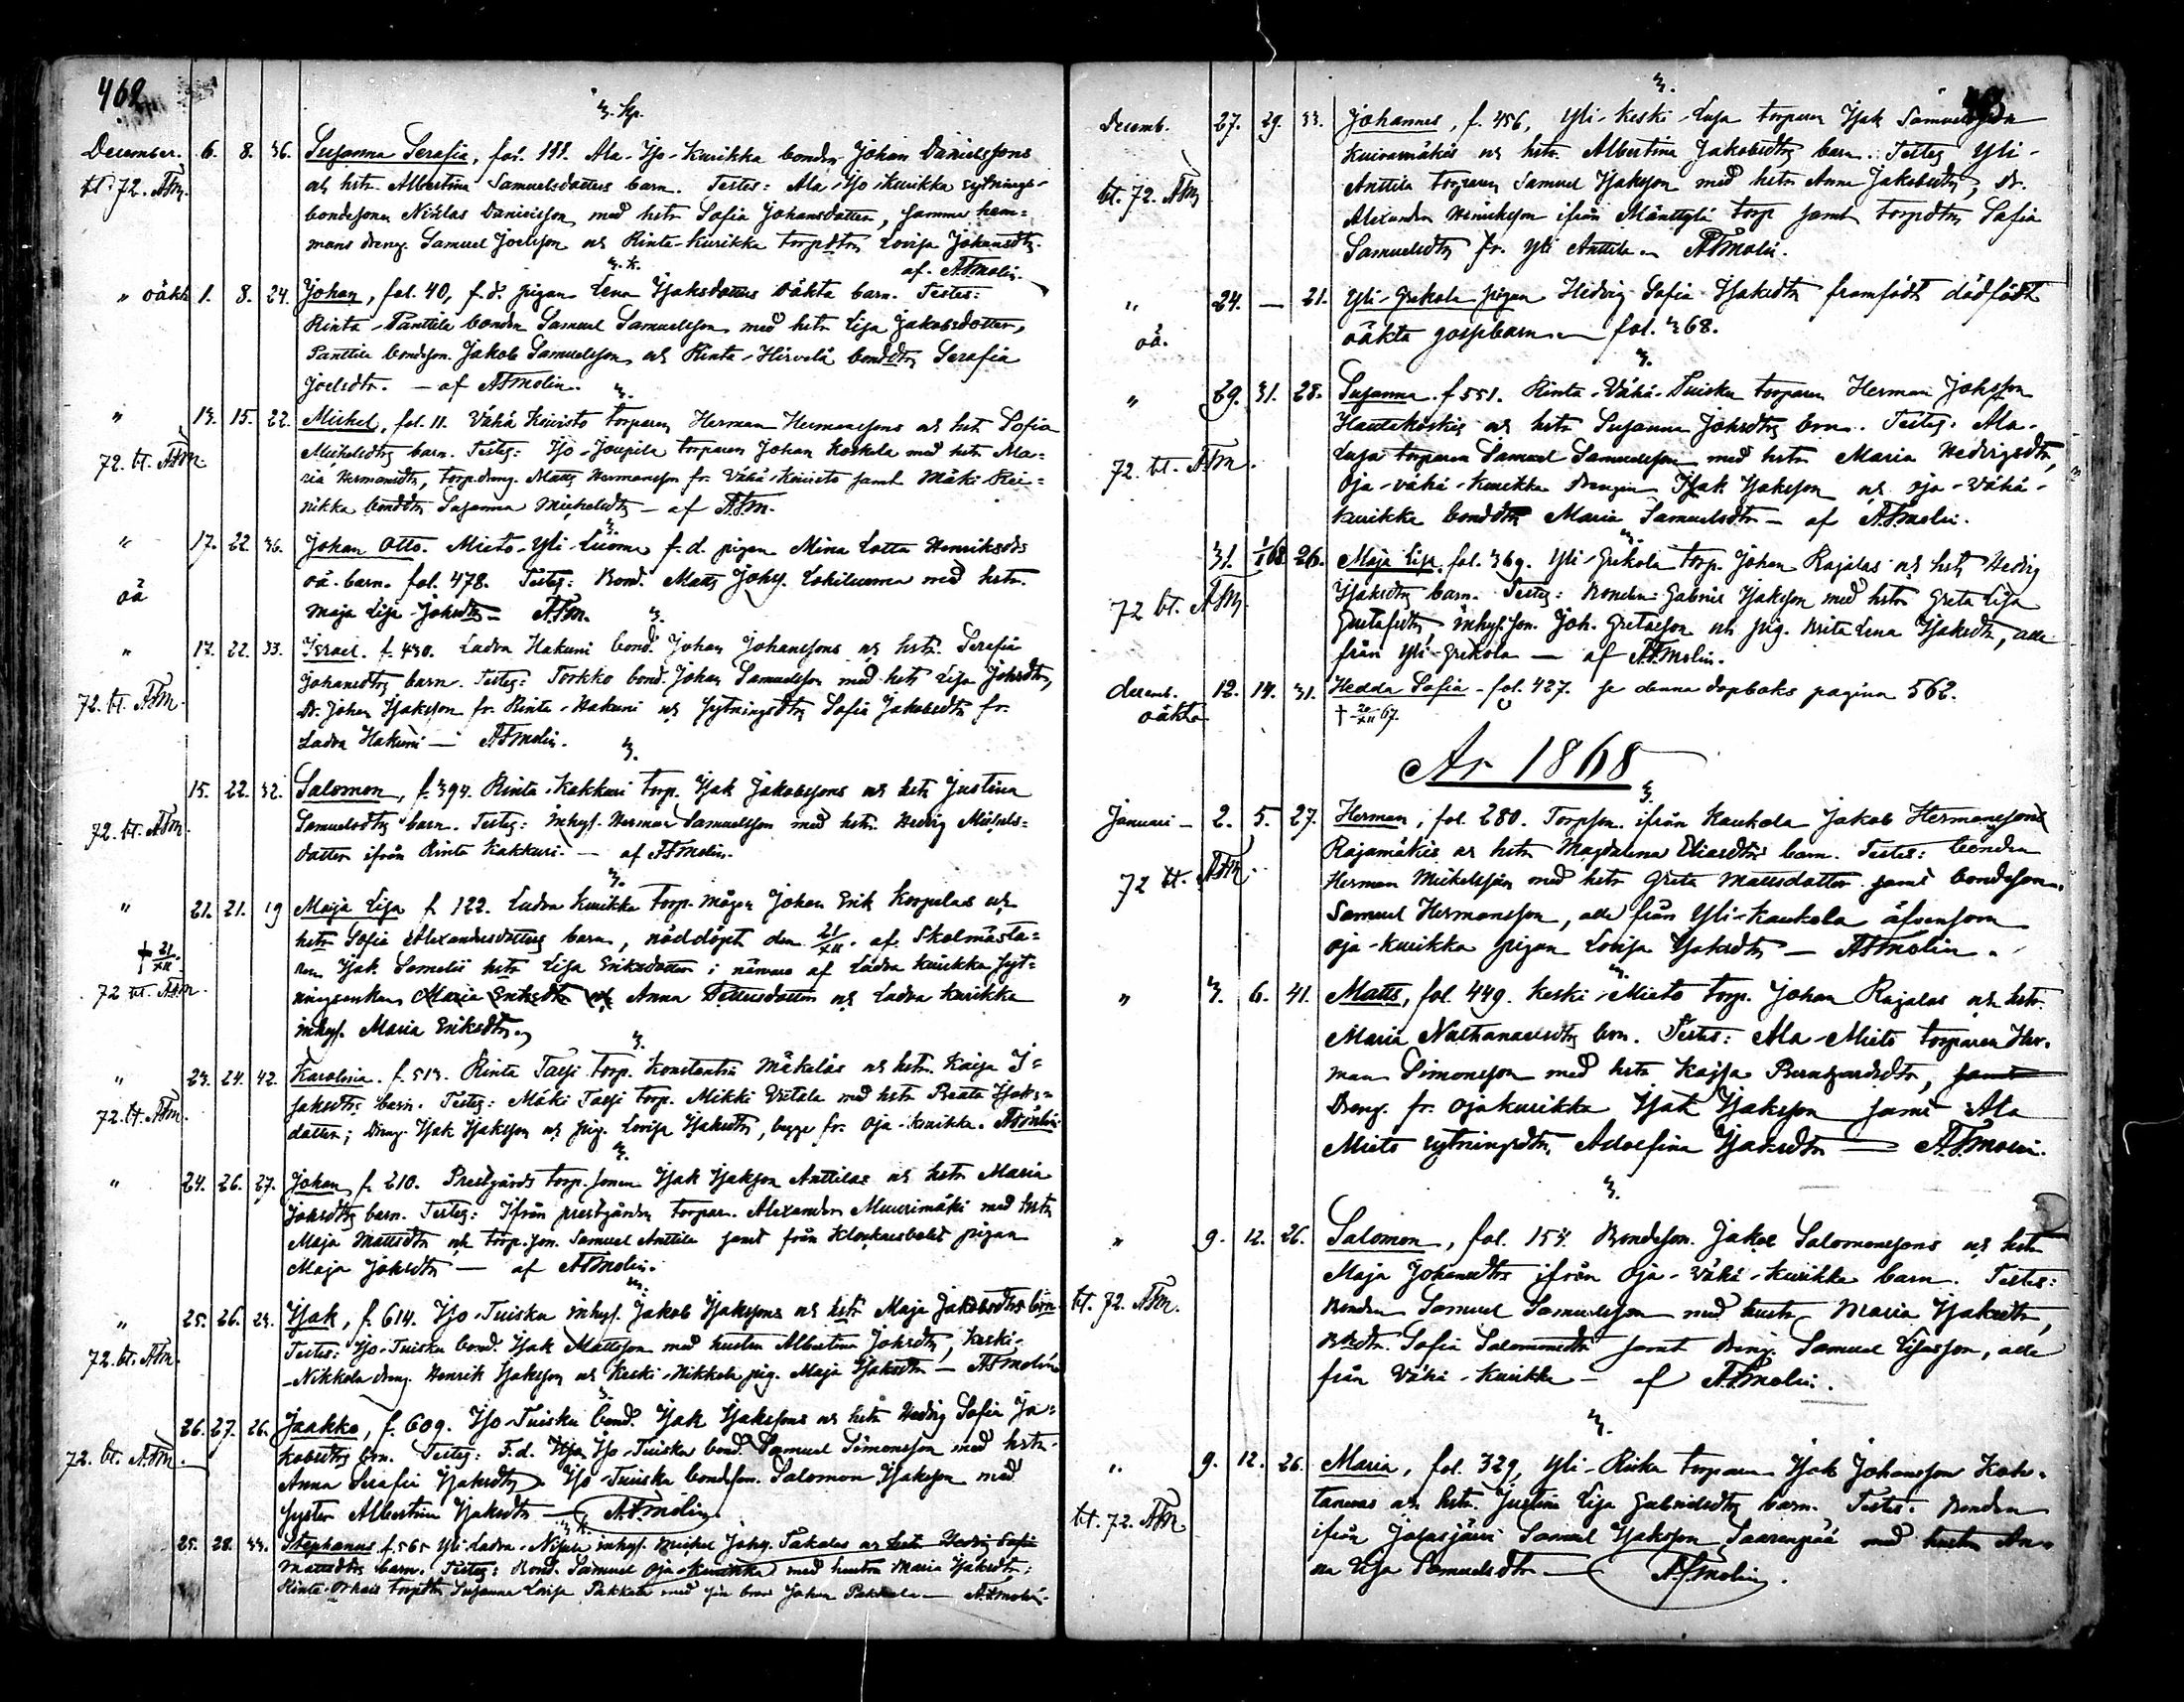 462
December. 6. 8. 36. Susanna Serafia, fol. 188. Ala-Iso-Kurikka bonden Johan Danielssons
bt 72. AFM. och hstr Albertina Samuelsdotters barn. Testes: Ala-Iso-Kurikka sytnings-
bondesonen Niklas Danielsson med hstr Sofia Johansdotter, samma hem-
mans dreng Samuel Joelsson och Rinta-Kurikka torpdtrn Lovisa Johansdtr.
af AFMolin.
" oäkta 1. 8. 24. Johan, fol. 40, f.d. pigan Lena Isaksdotters oäkta barn. Testes:
Rinta-Panttila bonden Samuel Samuelsson med hstr Lisa Jakobsdotter,
Panttila bondeson Jakob Samuelsson och Rinta-Hirvelä bonddtrn Serafia
Joelsdtr. — af AFMolin.
" 13. 15. 22. Mickel, fol. 11. Vähä Koivisto torparen Herman Hermanssons och hstr Sofia
72. bt. AFM. Mickelsdtrs barn. Testes: Iso-Joupila torparen Johan Koskela med hstr Ma-
ria Hermansdtr, torp.dreng. Matts Hermansson fr. Vähä-Koivisto samt Mäki-Rei-
nikka bonddtr Susanna Mickelsdtr — af AFM.
" 17. 22. 36. Johan Otto. Mieto-Yli-Luoma f.d. pigan Mina Lotta Henriksdtrs
oä oä. barn. fol. 478. Testes: Bond. Matts Johss. Lohiluoma med hstr.
Maja Lisa Johsdtr — AFM.
" 17. 22. 33. Israel. f. 430. Ladva Hakuni bond. Johan Johanssons och hstr. Serafia
72. bt. AFM. Johansdtrs barn. Testes: Torkko bond. Johan Samuelsson med hstr Lisa Johsdtr,
Dr. Johan Isaksson fr. Rinta-Hakuni och sytningsdtr Sofia Jakobsdtr fr.
Ladva Hakuni — AFMolin.
15. 22. 32. Salomon, f. 394. Rinta-Kakkuri torp. Isak Jakobssons och hstr Justina
72. bt. AFM. Samuelsdtrs barn. Testes: inhys. Herman Samuelsson med hstr. Hedvig Mickels-
dotter ifrån Rinta Kakkuri. — af AFMolin.
" 21. 21. 19 Maja Lisa f. 122. Ladva Kurikka torp. mågen Johan Erik Korpelas och
hstr Sofia Alexandersdotters barn, nöddöpt den 21/XII. af Skolmästa-
† 21/XII. ren Isak Samelii hstr Lisa Eriksdotter i närvaro af Ladva Kurikka syt-
72 bt. AFM. ningsenkan Maria Eriksdtr och Anna och Ladva Kurikka
inhys. Maria Eriksdtr.
" 23. 24. 42. Karolina. f. 513. Rinta Taipi torp. Konstantin Mäkeläs och hstr. Kaisa I-
72. bt. AFM. saksdtrs barn. Testes: Mäki Taipi torp. Mikki Viitala med hstr Beata Isaks-
dotter; dreng. Isak Isaksson och pig. Lovisa Isaksdtr, begge fr. Oja-Kurikka. AFMolin.
" 24. 26. 27. Johan f. 210. Prestgårds torp.sonen Isak Isakson Anttilas och hstr Maria
Johsdtrs barn. Testes: Ifrån prestgården torpar. Alexander Muurimäki med hstr
Maja Mattsdtr och torp.son. Samuel Anttila samt från Klockarsbolet pigan
Maja Johsdtr — af AFMolin.
" 25. 26. 23. Isak, f. 614. Iso-Tuisku inhys. Jakob Isakssons och hstr Maja Jakobsdtrs brn
72. bt. AFM. Testes: Iso-Tuisku bond. Isak Mattsson med hustru Albertina Johsdtr, Keski-
-Nikkola dreng. Henrik Isaksson och Keski-Nikkola pig. Maja Isaksdtr — AFMolin
26. 27. 26. Jaakko, f. 609. Iso-Tuisku bond. Isak Isakssons och hstr Hedvig Sofia Ja-
72. bt. AFM. kobsdtrs brn. Testes: F.d. Iso-Tuisku bond. Samuel Simonsson med hstr.
Anna Serafia Isaksdtr. Iso-Tuisku bondeson. Salomon Isaksson med
syster Albertina Isaksdtr — AFMolin
25. 28. 33. Stephanus f. 565 Yli-Ladva-Nisula inhys. Mickel Johss. Takalas och hstr Hedvig Sofia
Mattsdtrs barn. Testes: Bond. Samuel Oja-Kurikka med hustru Maria Isaksdtr;
torpdtr Susanna Lovisa Pakkala med sin bror Johan Pakkala — AFMolin.
Decemb. 27. 29. 33. Johannes, f. 456, Yli-Keski-Luopa torparen Isak Samuelsson
Kuivamäkis och hstr. Albertina Jakobsdtrs barn. Testes Yli-
bt. 72. AFM Anttila torparen Samuel Isaksson med hstr Anna Jakobsdtr, Dr.
Alexander Henriksson ifrån Mänttylä torp samt torpdtrn Sofia
Samuelsdtr fr. Yli Anttila — AFMolin.
" 24. — 21. Yli-Grekola pigan Hedvig Sofia Isaksdtr framfödt dödfödt
oä. oäkta gossebarn — fol. 368.
" 29. 31. 28. Susanna. f 551. Rinta-Vähä-Tuisku torparen Herman Johsson
Hautakoskis och hstr Susanna Johsdtrs brn. Testes: Ala-
72. bt. AFM. Luopa torparen Samuel Samuelsson med hstr Maria Hedvigsdtr,
Oja-Vähä-Kurikka drengen Isak Isaksson och Oja-Vähä-
Kurikka bonddtr Maria Samuelsdtr — af AFMolin.
31. 1/1 68 26. Maja Lisa, fol. 369. Yli-Grekola torp. Johan Rajalas och hstr Hedvig
72 bt. AFM. Isaksdtrs barn. Testes: Bonden Gabriel Isaksson med hstr Greta Lisa
Gustafsdtr, inhys.son. Joh. Gretasson och pig. Brita Lena Isaksdtr, alla
från Yli-Grekola — af AFMolin.
decemb. 12. 14. 31. Hedda Sofia - fol. 427. se denna dopboks pagina 562.
oäkta † 20/XII 67.
År 1868
Januari — 2. 5. 27. Herman, fol. 280. Torpson. ifrån Kaukola Jakob Hermanssons
Rajamäkis och hstr Magdalena Eliasdtrs barn. Testes: bonden
72 bt. AFM. Herman Mickelsson med hstr Greta Mattsdotter samt bondeson.
Samuel Hermansson, alla från Yli-Kaukola äfvensom
Oja-Kurikka pigan Lovisa Isaksdtr — AFMolin.
" 3. 6. 41. Matts, fol. 449. Keski-Mieto torp. Johan Rajalas och hstr.
Maria Nathanaelsdtrs brn. Testes: Ala-Mieto torparen Her-
man Simonsson med hstr Kajsa Bernhardsdtr, samt
Dreng. fr. Ojakurikka Isak Isaksson samt Ala
Mieto sytningsdtr, Adolfina Isaksdtr — AFMolin.
" 9. 12. 26. Salomon, fol. 153. Bondeson. Jakob Salomonssons och hstr
Maja Johansdtrs ifrån Oja-Vähä-Kurikka barn. Testes:
bt. 72. AFM. Bonden Samuel Samuelsson med hustru Maria Isaksdtr,
Bdtr. Sofia Salomonsdtr samt dreng. Samuel Lisasson, alla
från Vähä-Kurikka — af AFMolin.
" 9. 12. 26. Maria, fol. 329, Yli-Riska torparen Isak Johansson Koh-
tanens och hstr. Justina Lisa Gabrielsdtrs barn. Testes. Bonden
bt. 72. AFM ifrån Jalasjärvi Samuel Isaksson Saarenpää med hustru An-
na Lisa Samuelsdtr — AFMolin.